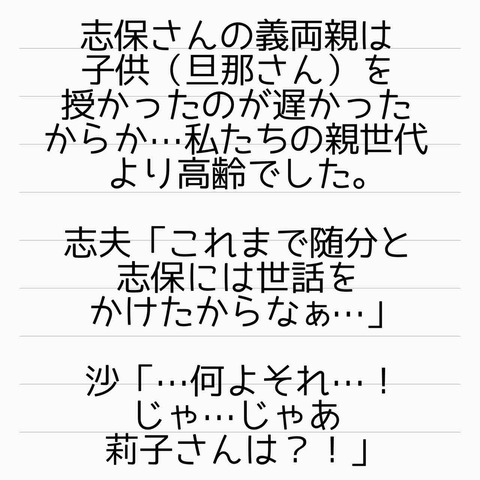 志保さんの義両親は
子供（旦那さん）を
授かったのが遅かった
からか…私たちの親世代
より高齢でした。
志夫「これまで随分と
志保には世話を
かけたからなぁ…」
沙「…何よそれ…！
じゃ…じゃあ
莉子さんは？！」